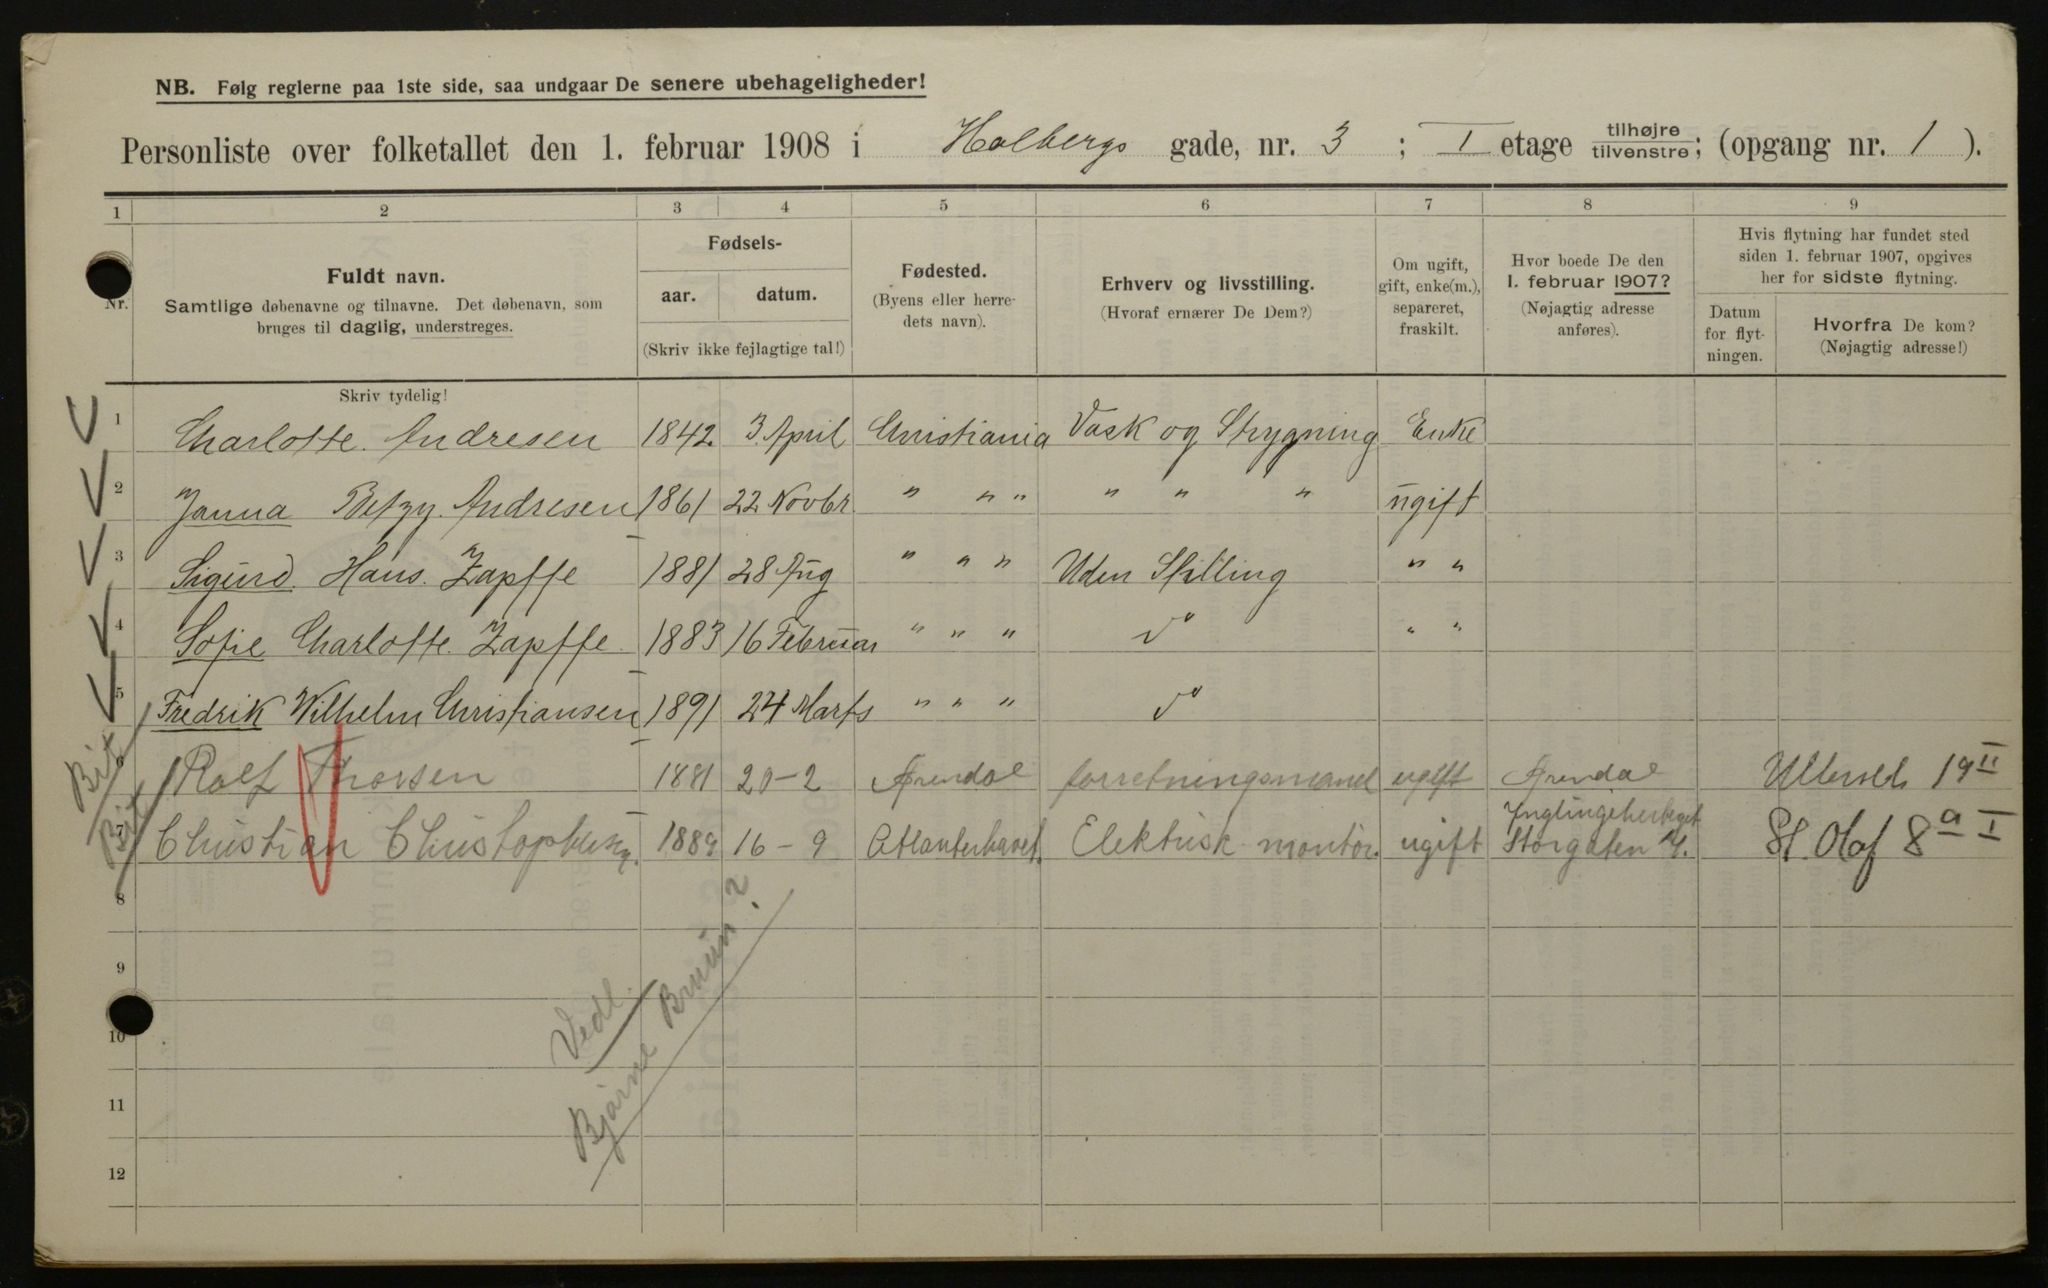 NB. Følg reglerne paa 1ste side, saa undgaar De senere ubehageligheder!
Personliste over folketallet den 1. februar 1908 i Holbergs gade, nr. 3 ; I etage tilhøjre tilvenstre; (opgang nr. 1 ).
1 2 3 4 5 6 7 8 9
Nr.
Fuldt navn.
Samtlige døbenavne og tilnavne. Det døbenavn, som
bruges til daglig, understreges.
Skriv tydelig!
Fødsels-
aar. datum.
(Skriv ikke fejlagtige tal!)
Fødested.
(Byens eller herre-
dets navn).
Erhverv og livsstilling.
(Hvoraf ernærer De Dem?)
Om ugift,
gift, enke(m.),
separeret,
fraskilt.
Hvor boede De den
1. februar 1907?
(Nøjagtig adresse
anføres).
Hvis flytning har fundet sted
siden 1. februar 1907, opgives
her for sidste flytning.
Datum
for flyt-
ningen.
Hvorfra De kom?
(Nøjagtig adresse!)
1 Charlotte Andresen 1842 3 April Christiania Vask og Strygning Enke
2 Janna Betzy Andresen 1861 22 Novbr " " " " " " ugift
3 Sigurd Hans Zapffe 1881 28 Aug " " " Uden Stilling " "
4 Sofie Charlotte Zapffe 1883 16 Februar " " " " "
5 Fredrik Wilhelm Christiansen 1891 24 Marts " " "
6 Rolf Thorsen 1881 20-2 Arendal forretningsmand ugift Arendal 19 II
7 Christian 1889 16-9 Atlanterhavet. Elektrisk montör. ugift Storgaten St. Olaf 8 a I
8
9
10
11
12
Vedl.
Bjarne Bruun?